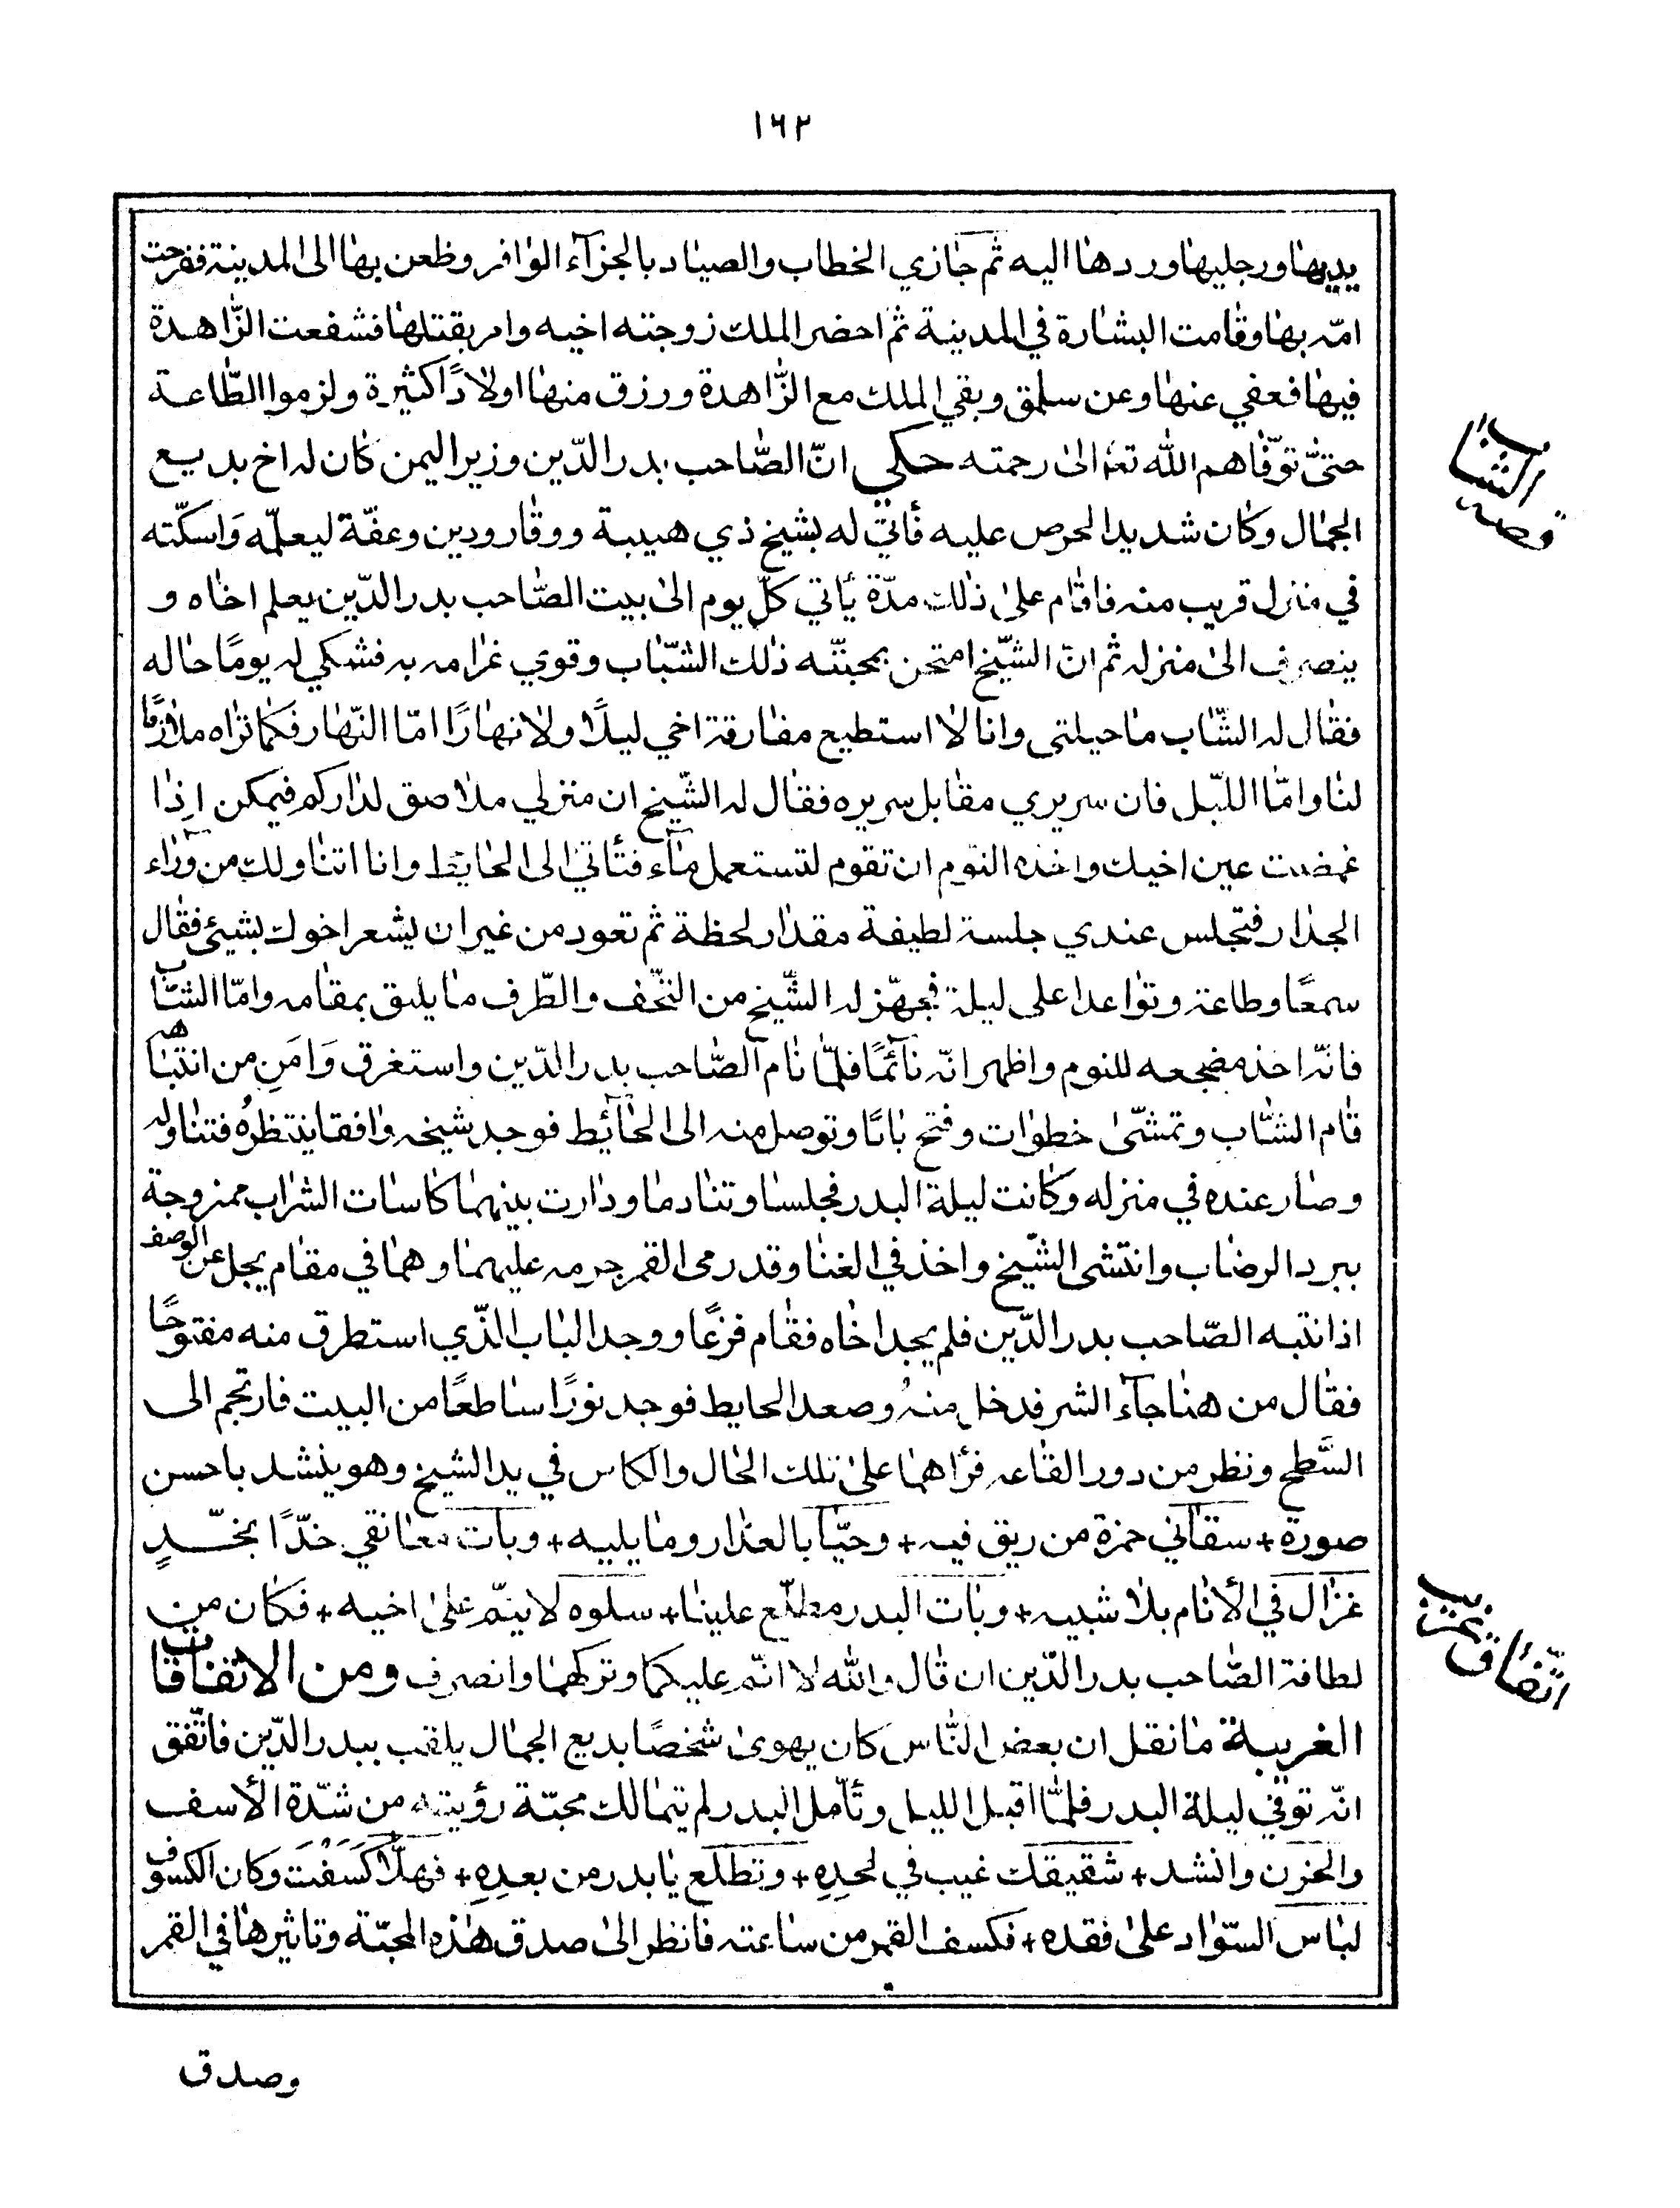 ١٦٢
يديها ورجليها وردها اليه ثم جازي الخطاب والصياد بالجزآء الوافر وظعن بها الى المدينة ففرحت
امّه بها وقامت البشارة في المدينة ثم احضر الملك زوجته اخيه وامر بقتلها فشفعت الزّاهدة
فيها فعفي عنها وعن سلمق وبقي الملك مع الزّاهدة ورزق منها اولادًا كثيرة ولزموا الطّاعة
حتىّ توّفاهم الله تعه الىٰ رحمته حكي انّ الصّاحب بدر الدّين وزير اليمن كان له اخ بديع
الجمال وكان شديد الحرص عليه فأتي له بشيخ ذي هيبة ووقار ودين وعفّة ليعلّمه واسكنّه
في منزل قريب منه فاقام علىٰ ذلك مدّة يأتي كلّ يوم الىٰ بيت الصّاحب بدر الدّين يعلم اخاه و
ينصرف الىٰ منزله ثم انّ الشّيخ امتحن بمحبّته ذلك الشّباب وقوي غرامه به فشكي له يومًا حاله
فقال له الشّاب ما حيلتي وانا لا استطيع مفارقة اخي ليلًا ولا نهارًا امّا النّهار فكما تراه ملازمًا
لنا وامّا اللّيل فان سريري مقابل سريره فقال له الشّيخ ان منزلي ملاصق لداركم فيمكن اذا
غمضت عين اخيك واخذه النوم ان تقوم لتستعمل مآء فتأتي الى الحايط وانا اتناولك من ورآء
الجدار فتجلس عندي جلسة لطيفة مقدار لحظة ثم تعود من غير ان يشعر اخوك بشيئ فقال
سمعًا وطاعة وتواعدا على ليلة فجهّز له الشّيخ من التّحف والطّرف ما يليق بمقامه وامّا الشّاب
فانّه اخذ مضجعه للنوم واظهر انّه نآئمًا فلمّا نام الصّاحب بدر الدّين واستغرق وَامَنِ من انتباهه
قام الشّاب وتمشّىٰ خطوات وفتح بابًا وتوصل منه الى الحآئيط فوجد شيخه وافقا ينتظرُه فتناوله
وصار عنده في منزله وكانت ليلة البدر فجلسا وتنادما ودارت بينهما كاسات الشراب ممزوجة
ببرد الرضاب وانتشى الشّيخ واخذ في الغنا وقد رمى القمر جرمه عليهما وهما في مقام يجل عن الوصف
اذ انتبه الصّاحب بدر الدّين فلم يجد اخاه فقام فزعًا ووجد الباب الّذي استطرق منه مفتوحًا
فقال من هنا جآء الشر فدخل منهُ وصعد الحايط فوجد نورًا ساطعًا من البيت فارتجم الى
السّطح ونظر من دور القاعه فرأهما علىٰ تلك الحال والكاس في يد الشيخ وهو ينشد باحسن
صورة + سقاني خمرة من ريق فيه + وحيّا بالعذار وما يليه + وبات معانقي خدّا بخدٍّ
غزال في الأنام بلا شبيه + وبات البدر مطلّع علينا + سلوه لا ينمّ علىٰ اخيه + فكان من
لطافة الصّاحب بدر الدّين ان قال والله لا انّم عليكما وتركهما وانصرف ومن الاتفاقات
الغريبة ما نقل ان بعض النّاس كان يهوىٰ شخصًا بديع الجمال يلقب ببدر الدّين فاتّفق
انّه توفي ليلة البدر فلمّا اقبل الليل وتأمل البدر لم يتمالك محبّة رؤيته من شدّة الأسف
والحزن وانشد + شقيقك غيب في لحدِهِ + وتطلع يا بدر من بعدِهِ + فهلّا كَسَفْتَ وكان الكسوف
لباس السّواد علىٰ فقده + فكسف القمر من ساعته فانظر الىٰ صدق هذه المحبّة وتاثيرها في القمر
وصدق
قصه الشاب
اتّفاق غريب